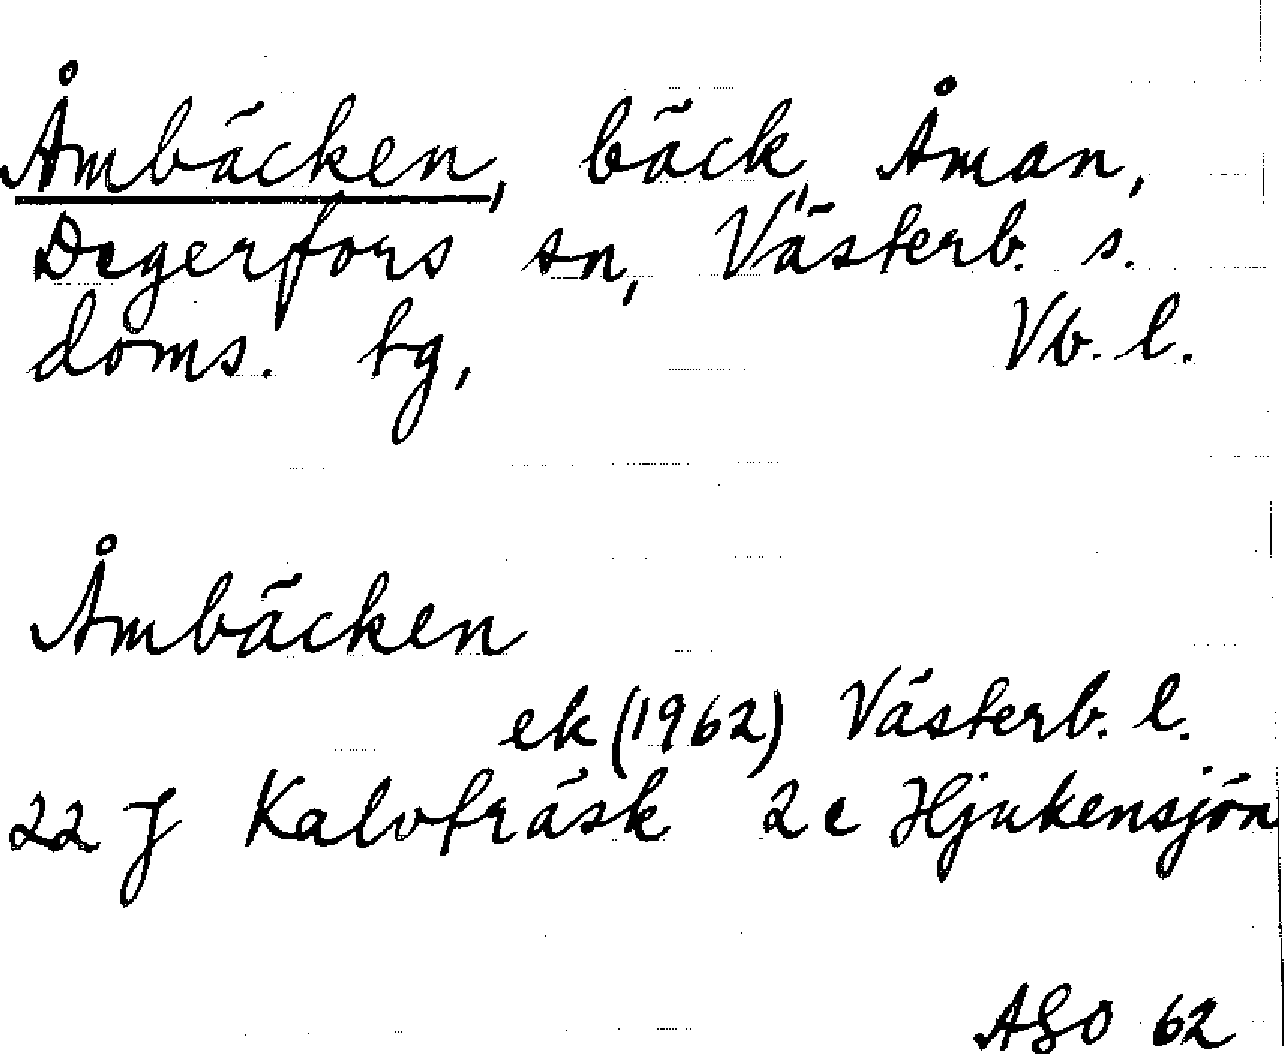 Åmbäcken, bäck, Åman,
Degerfors sn, Västerb. s.
doms. tg, Vb. l.
Åmbäcken
ek (1962) Västerb. l.
22 J Kalvträsk 2 c Hjukensjön
ASO 62